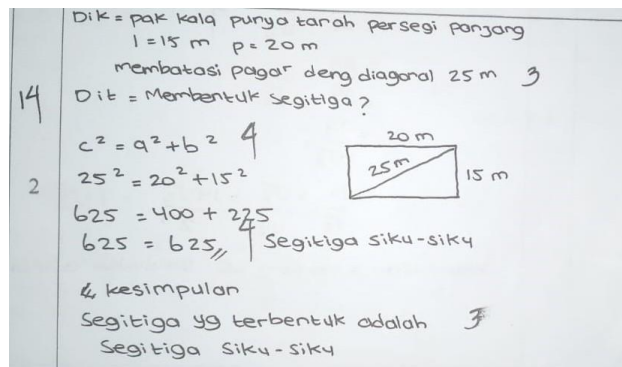 Dik = pak kala punya tanah persegi panjang
l = 15 m p = 20 m
membatasi pagar deng diagonal 25 m 3
14
Dit = Membentuk segitiga?
c² = a² + b² 4
20 m
25 m
15 m
2
25² = 20² + 15²
625 = 400 + 225
625 = 625,, 4 Segitiga siku-siku
kesimpulan
Segitiga yg terbentuk adalah 3
Segitiga Siku-Siku